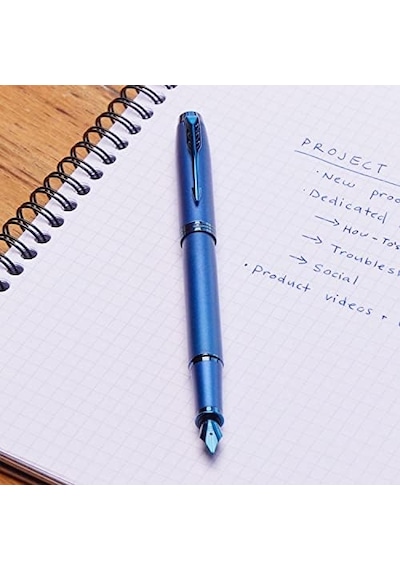 PROJECT
• New prod
• Dedicated
→ How-To's
→ Troublesh
→ Social
• Product videos +